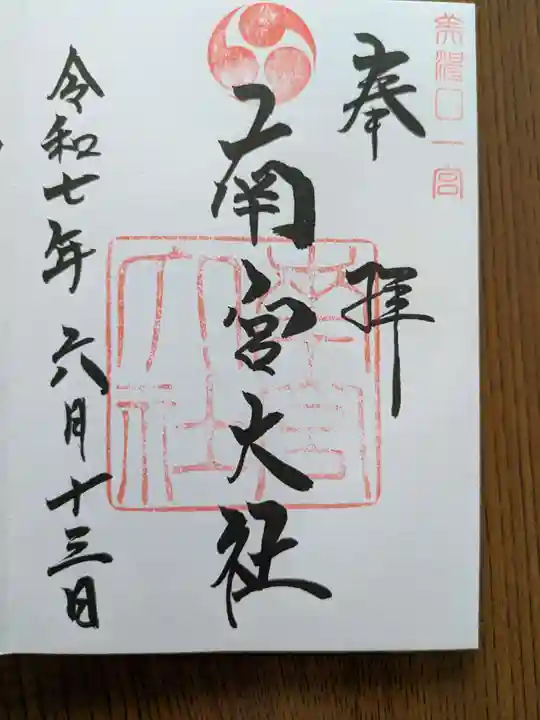 美濃国一宮
奉拝
南宮大社
南宮大社
令和七年六月十三日